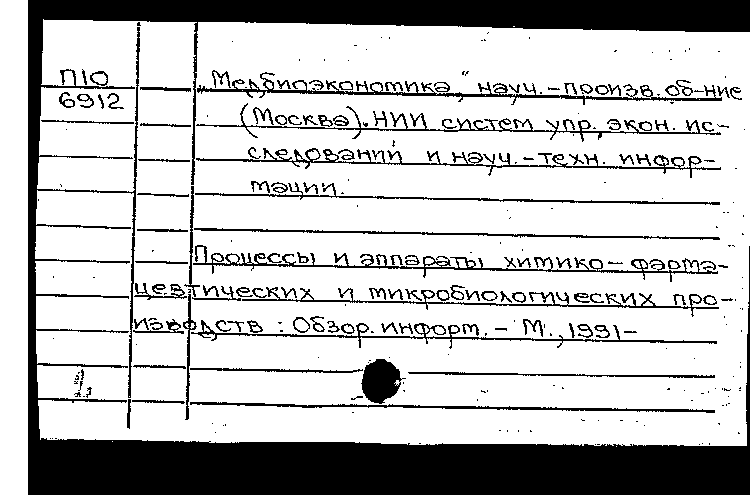 П10
6912
„Медбиоэкономика,“ науч.-произв. об-ние
(Москва). НИИ систем упр., экон. ис-
следований и науч.-техн. инфор-
мации.
Процессы и аппараты химико-фарма-
цевтических и микробиологических про-
изводств : Обзор. информ. - М., 1991-